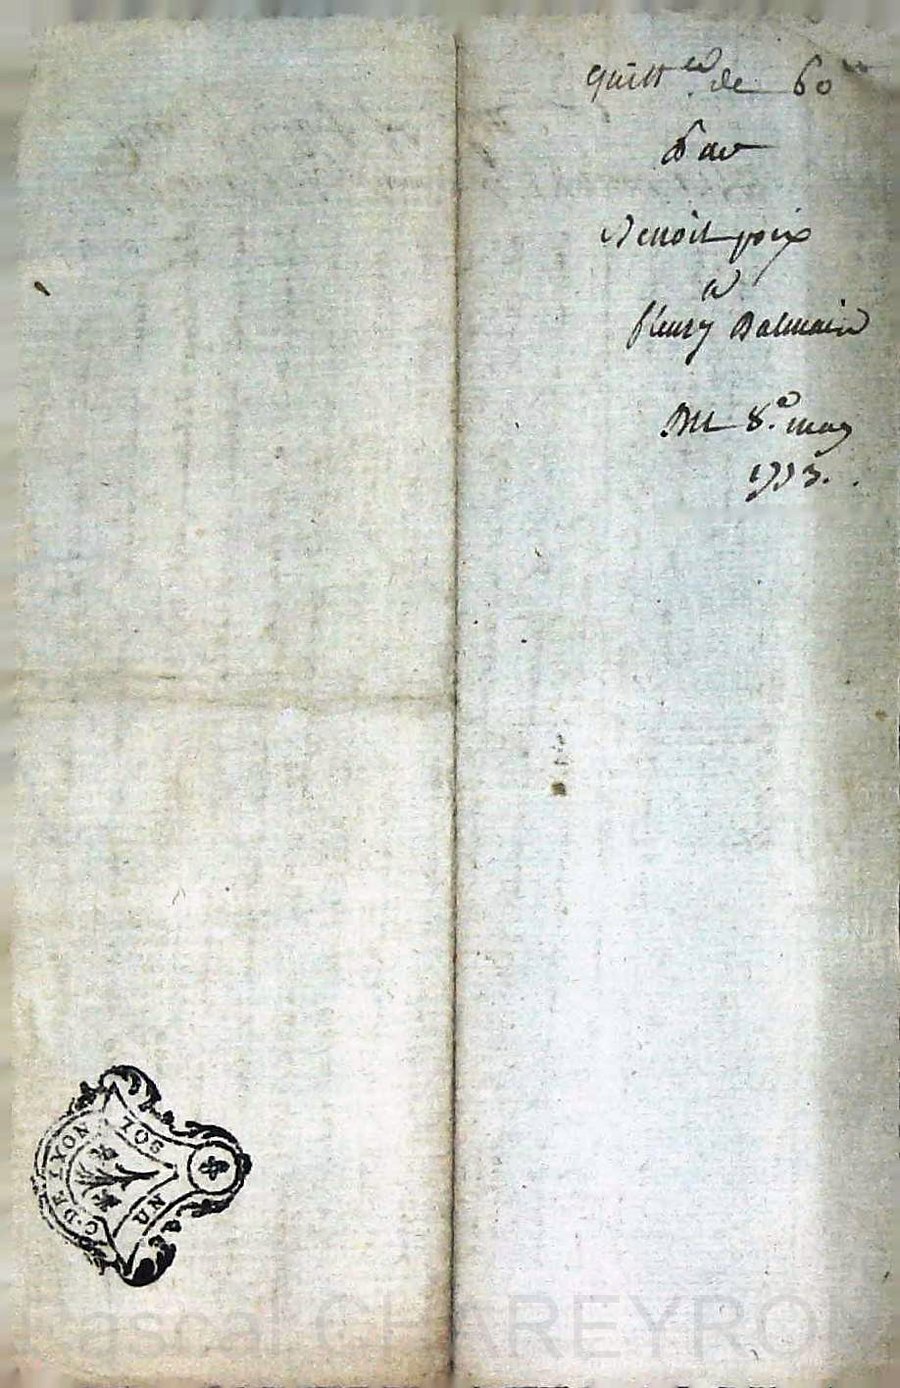 quitt.ce de 60 ₶
Par
Benoit poix
a
fleury Balmain
Du 8.e may
1753.
G. DE LYON
UN SOL
Pascal CHAREYRON